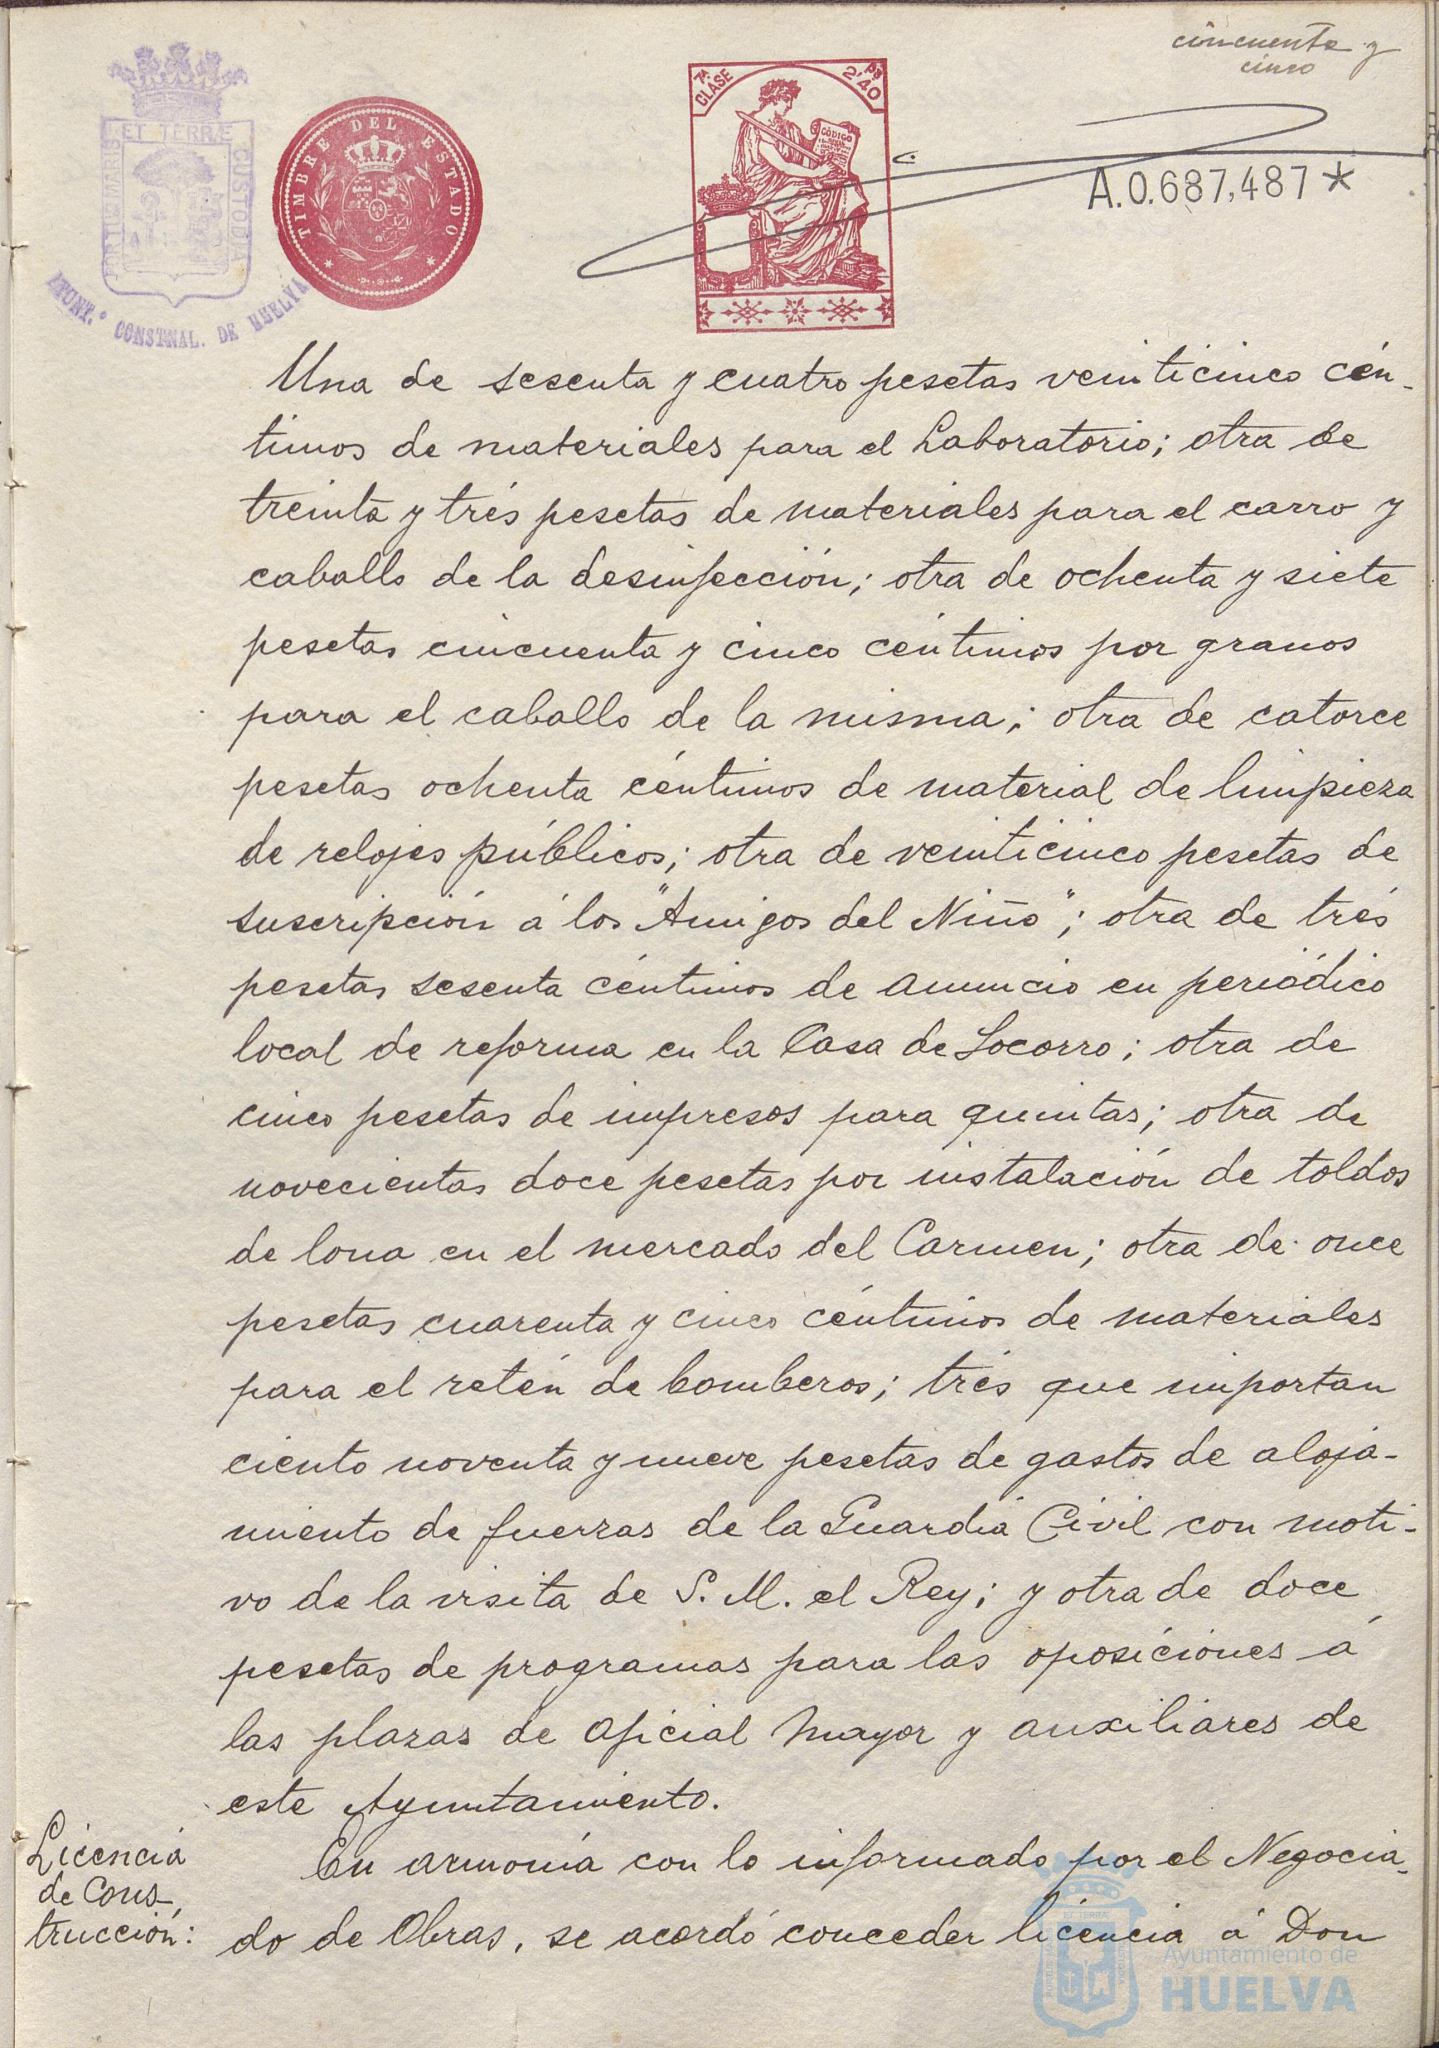 cincuenta y
cinco
PORTUS MARIS ET TERRÆ CUSTODIA
AYUNT.º CONSTNAL. DE HUELVA
TIMBRE DEL ESTADO
7ª CLASE
2'40 PS
CÓDIGO
A.0.687,487*
Una de sesenta y cuatro pesetas veinticinco cén-
timos de materiales para el Laboratorio; otra de
treinta y trés pesetas de materiales para el carro y
caballo de la desinfección; otra de ochenta y siete
pesetas cincuenta y cinco céntimos por granos
para el caballo de la misma; otra de catorce
pesetas ochenta céntimos de material de limpieza
de relojes públicos; otra de veinticinco pesetas de
suscripción á los "Amigos del Niño"; otra de trés
pesetas sesenta céntimos de anuncio en periódico
local de reforma en la Casa de Socorro; otra de
cinco pesetas de impresos para quintas; otra de
novecientas doce pesetas por instalación de toldos
de lona en el mercado del Carmen; otra de once
pesetas cuarenta y cinco céntimos de materiales
para el retén de bomberos; trés que importan
ciento noventa y nueve pesetas de gastos de aloja-
miento de fuerzas de la Guardia Civil con moti-
vo de la visita de S. M. el Rey; y otra de doce
pesetas de programas para las oposiciones á
las plazas de oficial mayor y auxiliares de
este Ayuntamiento.
Licencia
de Cons-
trucción:
En armonía con lo informado por el Negocia-
do de Obras, se acordó conceder licencia á Don
Ayuntamiento de
HUELVA